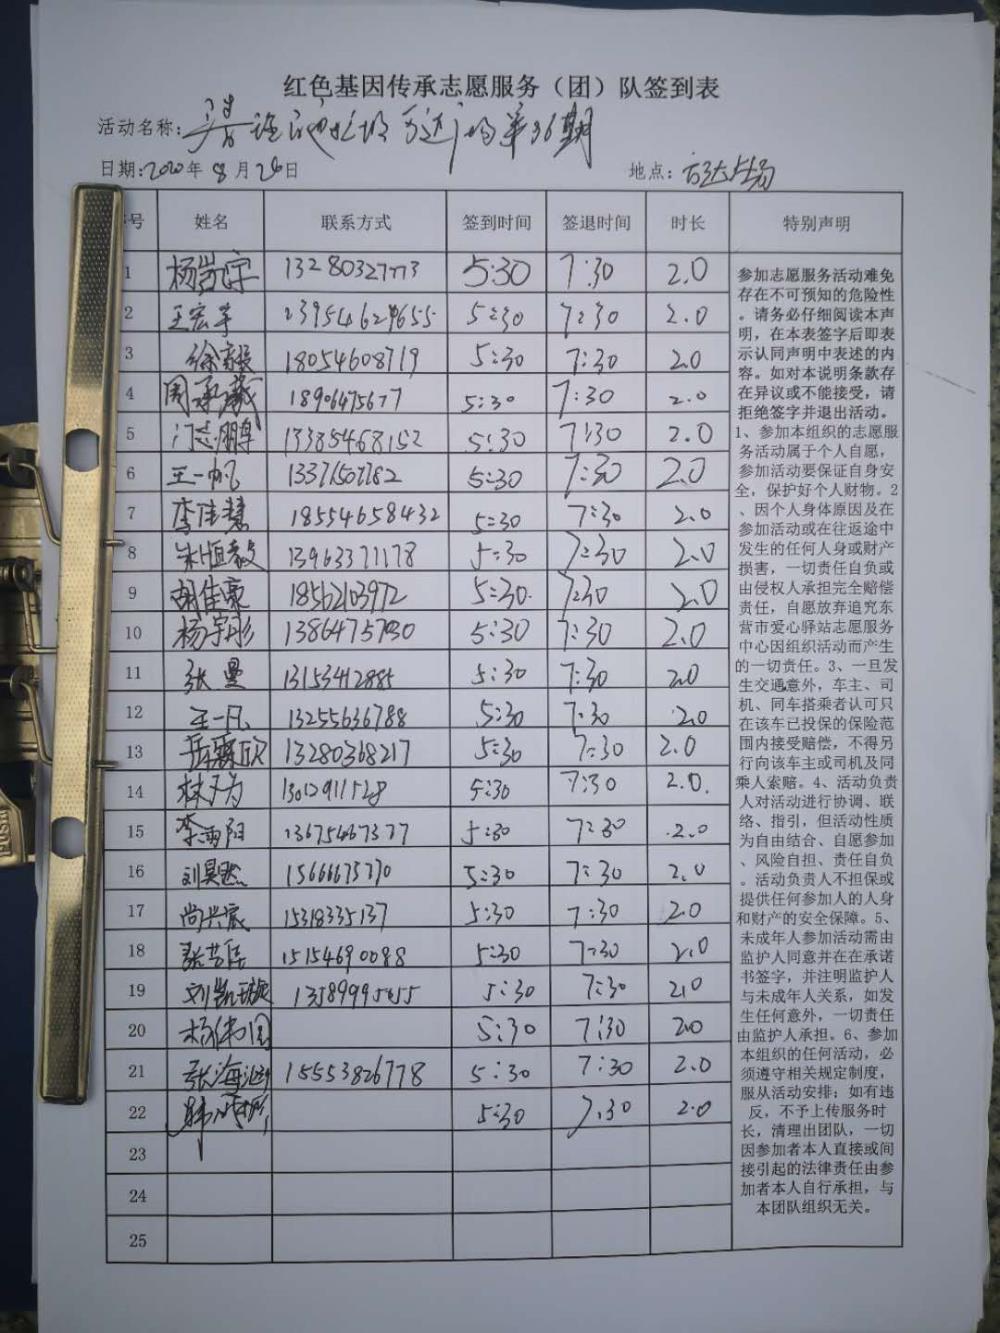 红色基因传承志愿服务（团）队签到表
活动名称: 第36期
日期:2020年8月26日 地点: 万达广场
号 姓名 联系方式 签到时间 签退时间 时长 特别声明
1 13280327773 5:30 7:30 2.0
2 王宏宇 5:30 7:30 2.0
3 徐 18054608719 5:30 7:30 2.0
4 周承 5:30 7:30 2.0
5 门志鹏 13385468152 5:30 7:30 2.0
6 王一帆 5:30 7:30 2.0
7 李佳慧 18554658432 5:30 7:30 2.0
8 朱恒毅 13963371178 5:30 7:30 2.0
9 胡佳豪 18562103972 5:30 7:30 2.0
10 杨宇彤 5:30 7:30 2.0
11 张曼 13153412885 5:30 7:30 2.0
12 王一凡 13255636788 5:30 7:30 2.0
13 13280368217 5:30 7:30 2.0
14 林 5:30 7:30 2.0.
15 李雨阳 13675467377 5:30 7:30 2.0
16 刘昊 15666675770 5:30 7:30 2.0
17 尚兴宸 15318335137 5:30 7:30 2.0
18 张艺佳 15154690088 5:30 7:30 2.0
19 刘凯 5:30 7:30 2.0
20 杨伟国 5:30 7:30 2.0
21 张海 15553826778 5:30 7:30 2.0
22 韩 5:30 7:30 2.0
23
24
25
参加志愿服务活动难免
存在不可预知的危险性
。请务必仔细阅读本声
明，在本表签字后即表
示认同声明中表述的内
容。如对本说明条款存
在异议或不能接受，请
拒绝签字并退出活动。
1、参加本组织的志愿服
务活动属于个人自愿，
参加活动要保证自身安
全，保护好个人财物。2
、因个人身体原因及在
参加活动或在往返途中
发生的任何人身或财产
损害，一切责任自负或
由侵权人承担完全赔偿
责任，自愿放弃追究东
营市爱心驿站志愿服务
中心因组织活动而产生
的一切责任。3、一旦发
生交通意外，车主、司
机、同车搭乘者认可只
在该车已投保的保险范
围内接受赔偿，不得另
行向该车主或司机及同
乘人索赔。4、活动负责
人对活动进行协调、联
络、指引，但活动性质
为自由结合、自愿参加
、风险自担、责任自负
。活动负责人不担保或
提供任何参加人的人身
和财产的安全保障。5、
未成年人参加活动需由
监护人同意并在在承诺
书签字，并注明监护人
与未成年人关系，如发
生任何意外，一切责任
由监护人承担。6、参加
本组织的任何活动，必
须遵守相关规定制度，
服从活动安排；如有违
反，不予上传服务时
长，清理出团队，一切
因参加者本人直接或间
接引起的法律责任由参
加者本人自行承担，与
本团队组织无关。
PUSH